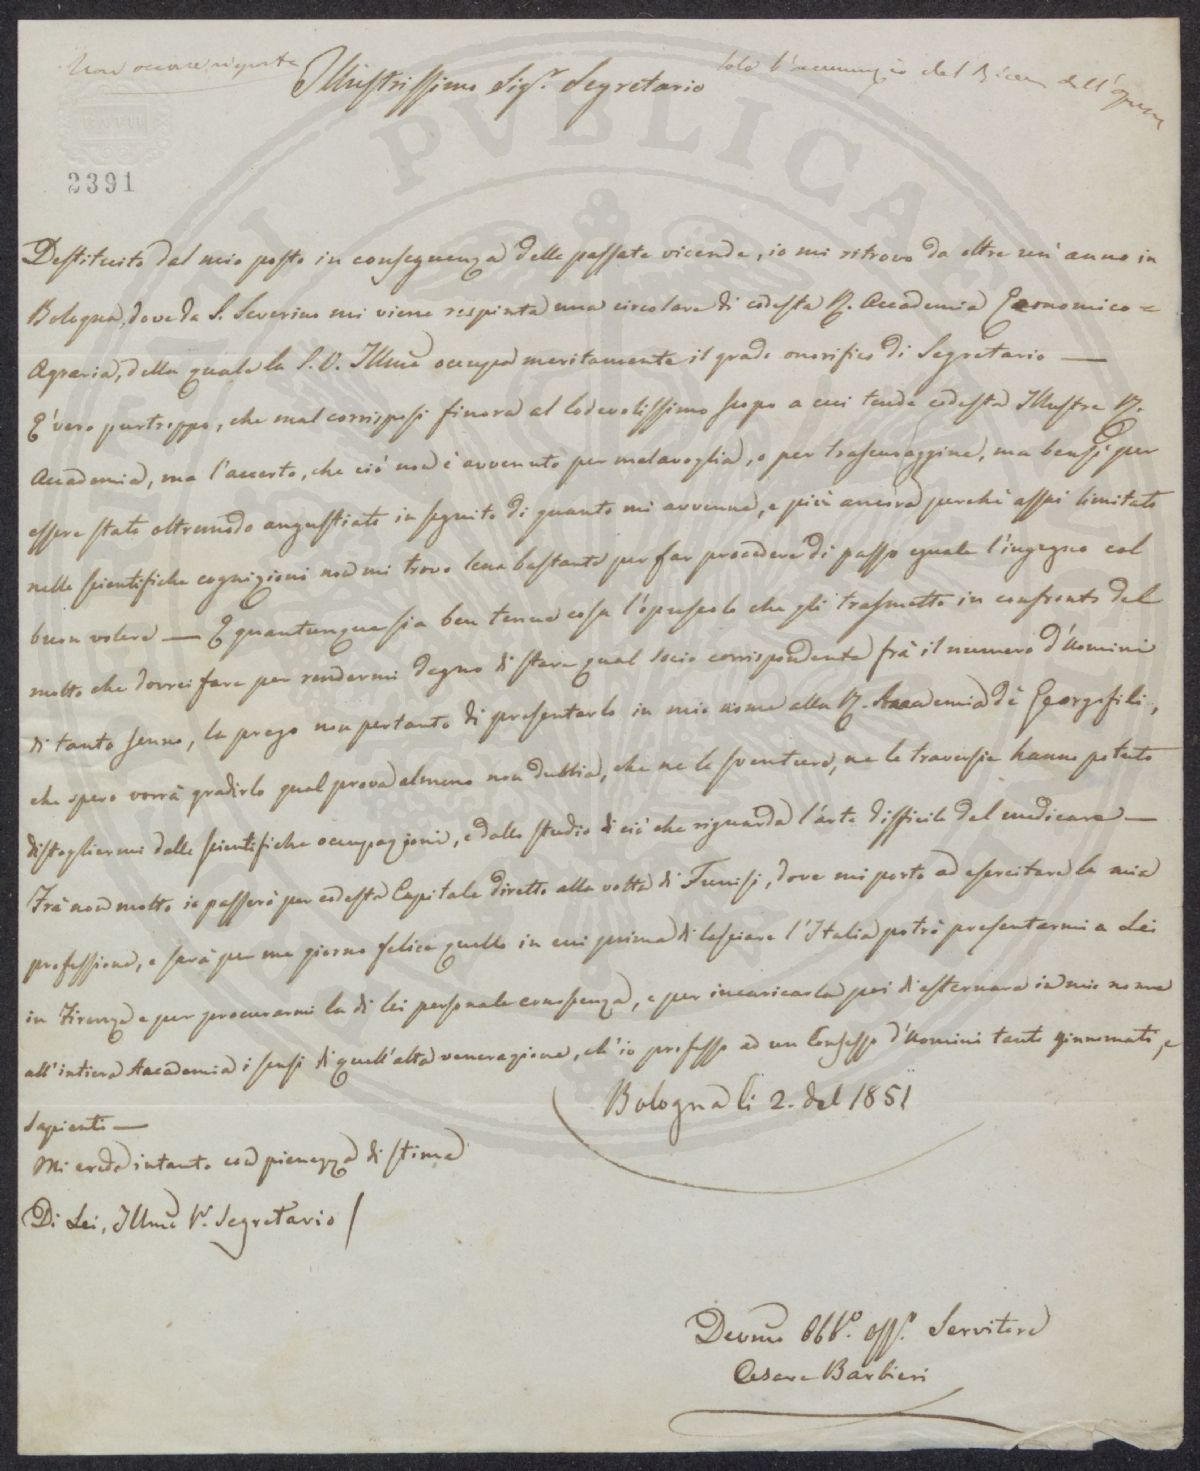 Non occorre risposta
solo l'annunzio del Ricev. dell'
Illustrissimo Sigr. Segretario
2391
Destituito dal mio posto in conseguenza delle passate vicende, io mi ritrovo da oltre un'anno in
Bologna, dove da S. Severino mi viene respinta una circolare di codesta R. Accademia Economico =
Agraria, della quale la S. V. Illma occupa meritamente il grado onorifico di Segretario —
E' vero purtroppo, che mal corrisposi finora al lodevolissimo scopo a cui tende codesta Illustre R.
Accademia, ma l'accerto, che ciò non è avvenuto per malavoglia, o per trascuraggine, ma bensì per
essere stato oltremodo angustiato in seguito di quanto mi avvenne, e più ancora perchè assai limitato
nelle scientifiche cognizioni non mi trovo lena bastante per far procedere di passo eguale l'ingegno col
buon volere — E quantunque sia ben tenue cosa l'opuscolo che gli trasmetto in confronto del
molto che dovrei fare per rendermi degno di stare qual socio corrispondente frà il numero d'Uomini
di tanto senno, la prego non pertanto di presentarlo in mio nome alla R. Accademia dè Georgofili,
che spero vorrà gradirlo qual prova almeno non dubbia, che ne le sventure, ne le traversie hanno potuto
distogliermi dalle scientifiche occupazioni, e dallo studio di ciò che riguarda l'arte difficile del medicare —
Frà non molto io passerò per codesta Capitale diretto alla volta di Tunisi, dove mi porto ad esercitare la mia
professione, e sarà per me giorno felice quello in cui prima di lasciare l'Italia potrò presentarmi a Lei
in Firenze e per procurarmi la di lei personale conoscenza, e per incaricarla poi di esternare in mio nome
all'intiera Accademia i sensi di quell'alta venerazione, ch'io professo ad un Consesso d'Uomini tanto rinnomati, e
sapienti —
Bologna li 2. del 1851
Mi creda intanto con pienezza di stima
Di Lei, Illmo Sr. Segretario /
Devmo Obbo. Affo. Servitore
Cesare Barbieri